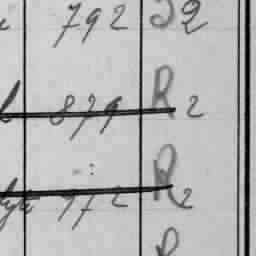 792 J2
879 R2
772 R2
R